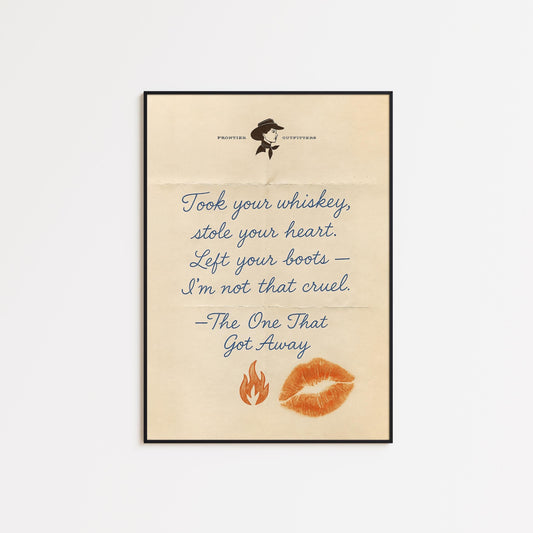 FRONTIER OUTFITTERS
Took your whiskey,
stole your heart.
Left your boots —
I'm not that cruel.
—The One That
Got Away